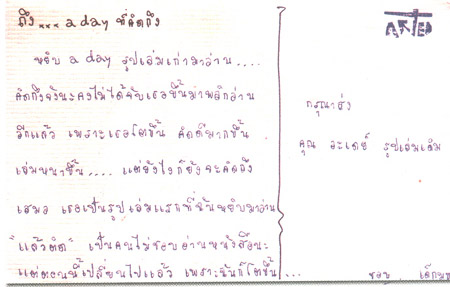 ถึง... a day ที่คิดถึง
หยิบ a day รูปเล่มเก่ามาอ่าน....
คิดถึงจังนะคงไม่ได้จับเธอขึ้นมาพลิกอ่าน
อีกแล้ว เพราะเธอโตขึ้น คิดดีมากขึ้น
เล่มหนาขึ้น.... แต่ยังไงก็ยังจะคิดถึง
เสมอ เธอเป็นรูปเล่มแรกที่ฉันหยิบมาอ่าน
"แล้วติด" เป็นคนไม่ชอบอ่านหนังสือนะ
แต่ตอนนี้เปลี่ยนไปแล้ว เพราะฉันก็โตขึ้น...
กรุณาส่ง
คุณ อะเดย์ รูปเล่มเดิม
ชอบ